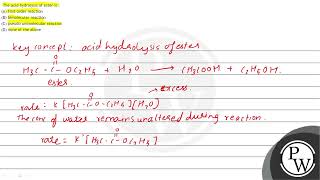 The acid hydrolysis of ester is :
(a) first order reaction
(b) bimolecular reaction
(c) pseudo unimolecular reaction
(d) none of the above
Key concept : acid hydrolysis of ester
O
H3C - C - OC2H5 + H2O → CH3COOH + C2H5OH
ester excess
O
rate = K [H3C - C - O - C2H5] [H2O]
The conc of water remains unaltered during reaction.
O
rate = K' [H3C - C - OC2H5]
PW